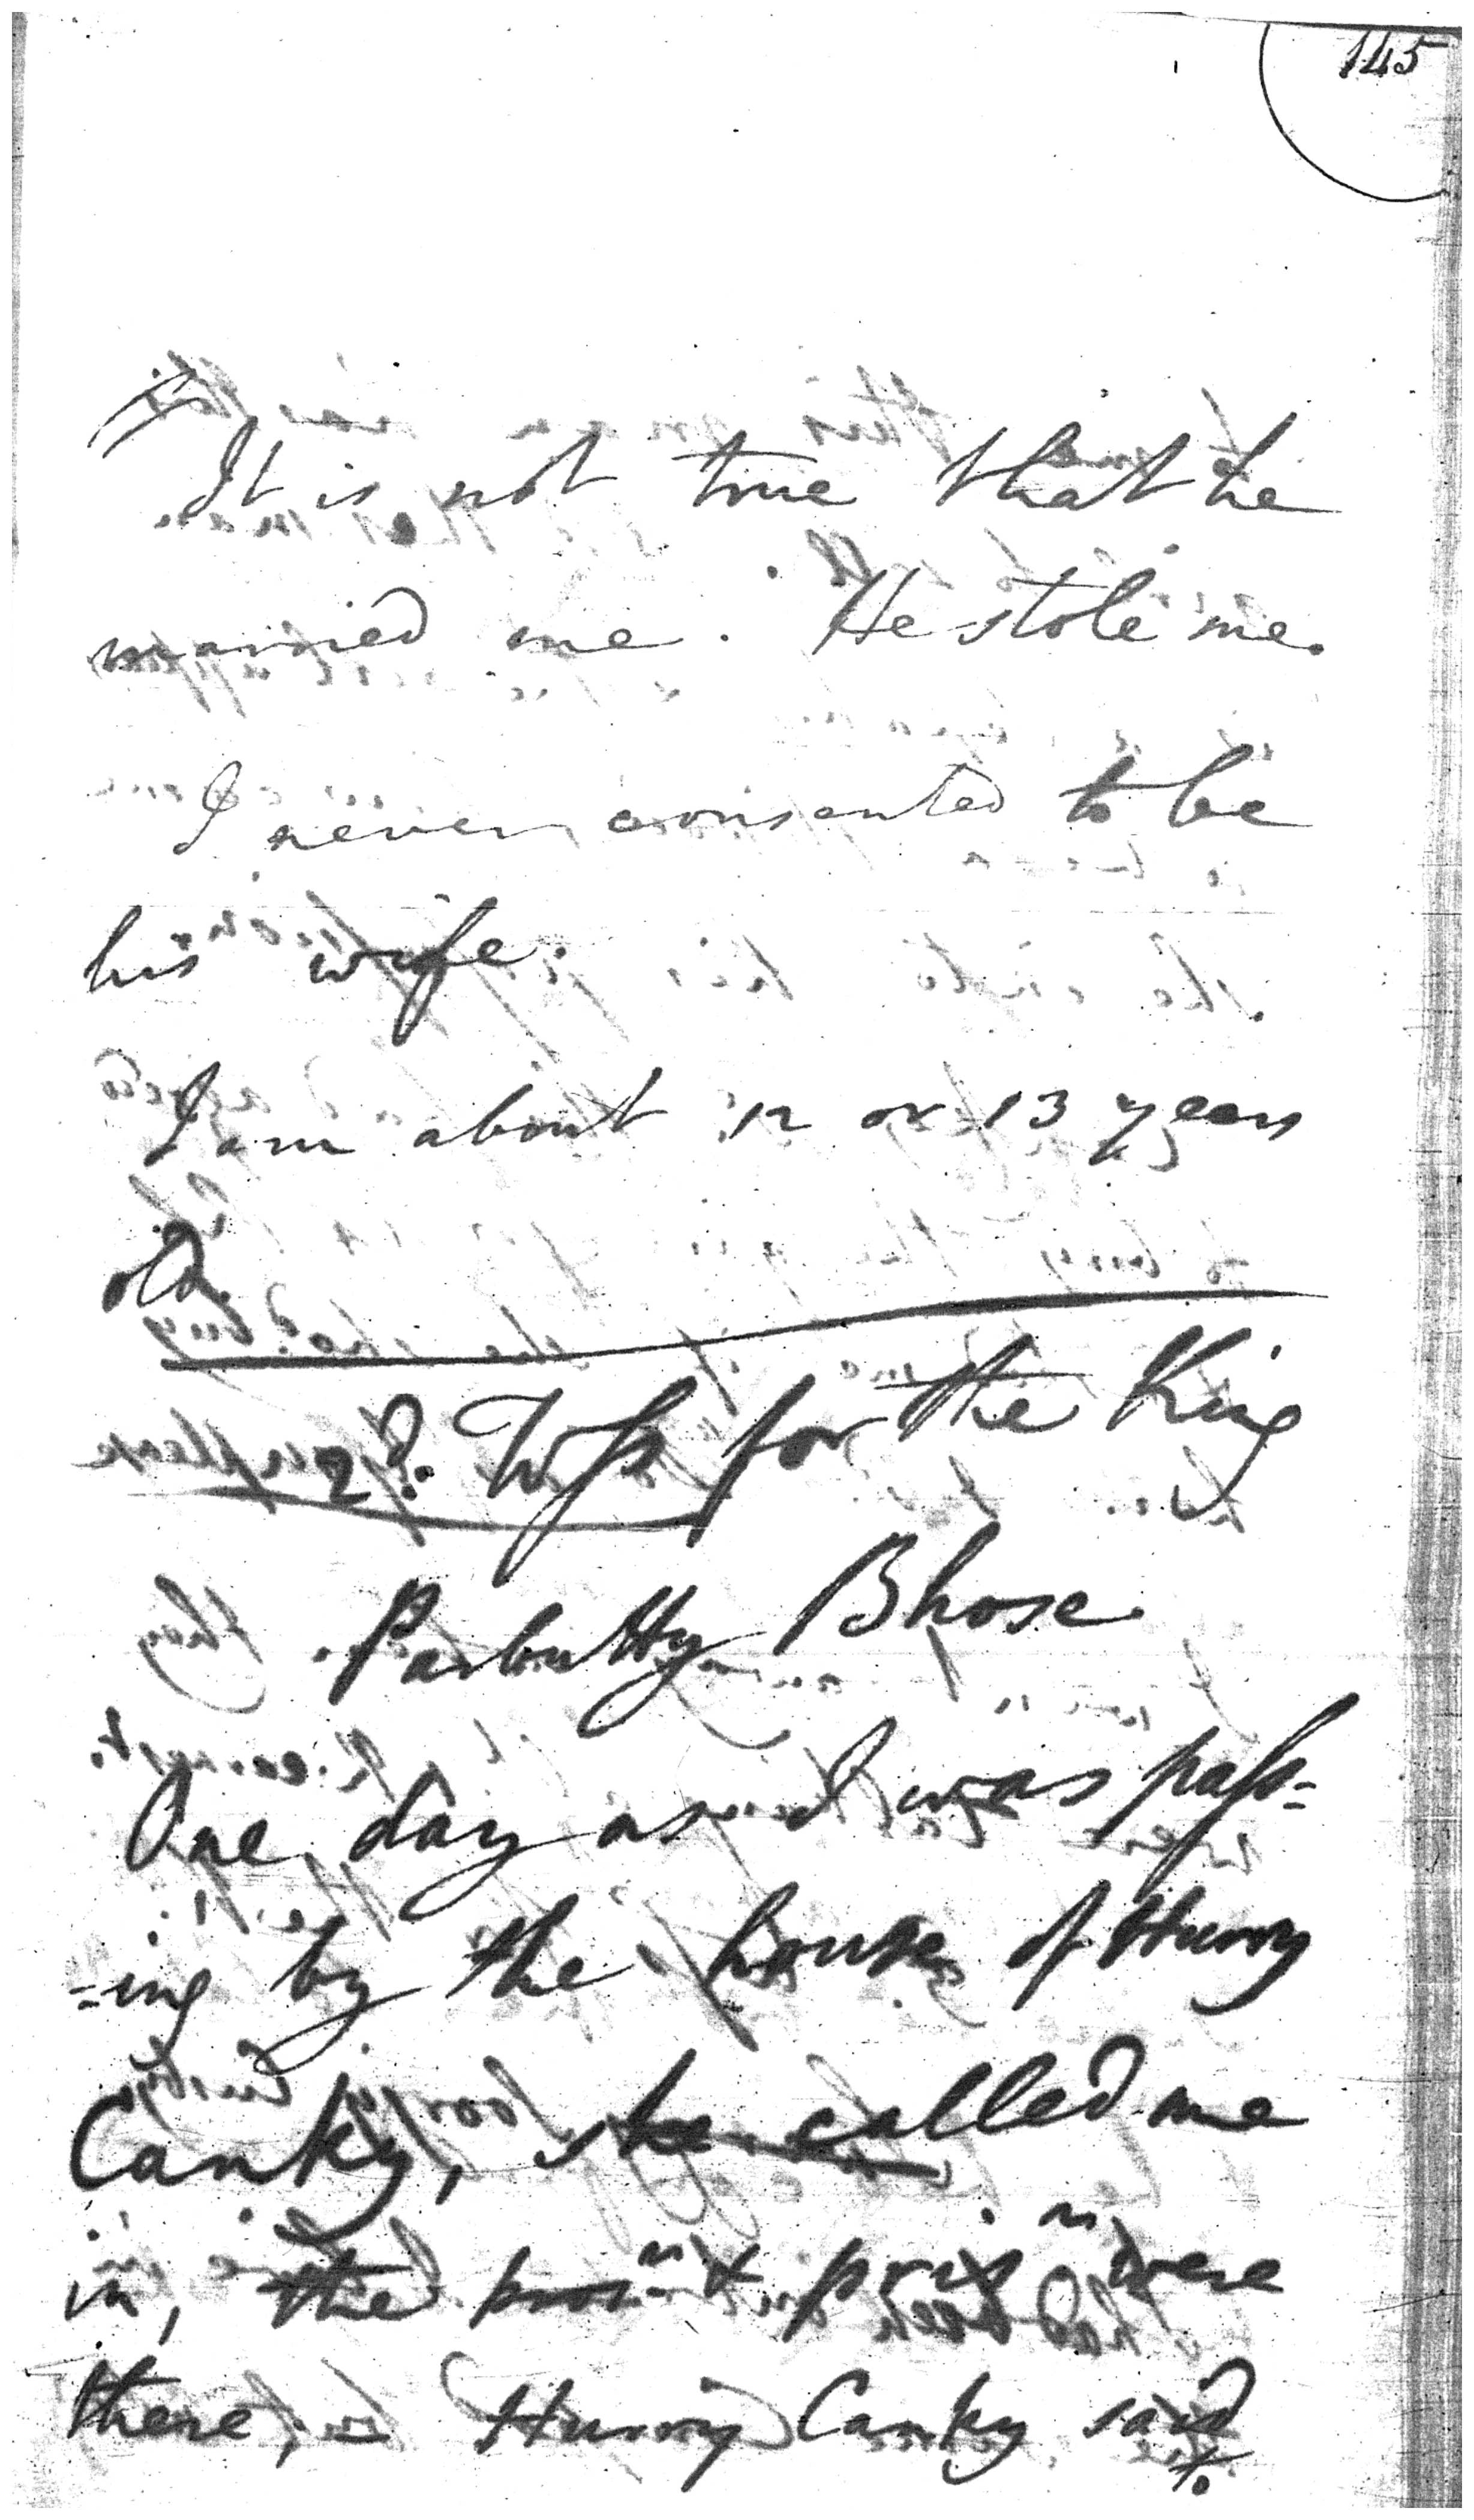 145
It is not true that he
married me. He stole me.
I never consented to be
his wife.
I am about 12 or 13 years
old.
2d. Wss for the King
Parbutty Bhose
One day as I was pass=
=ing by the house of Hurry
Canky, she called me
in, the prosr & prisr were
there, Hurry Canky said
to